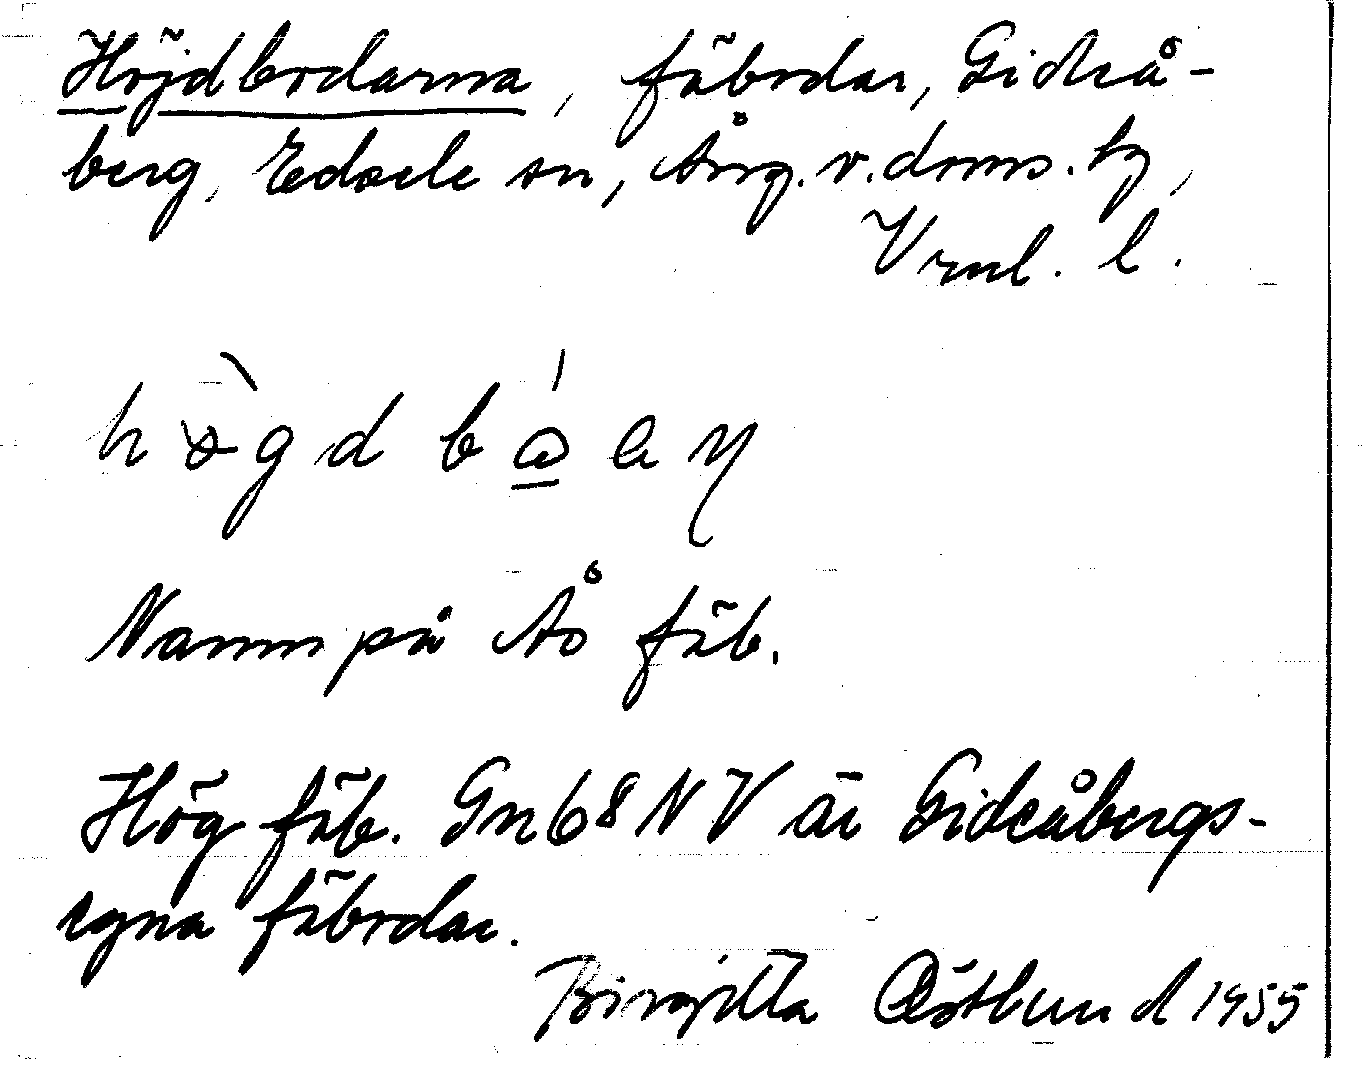 Höjdbodarna, fäbodar, Gideå-
berg, Edsele sn, Ång. v. doms. tg,
Vrnl. l.
Namn på Ås fäb.
Hög fäb. Gn 68 NV är Gideåbergs-
egna fäbodar.
Birgitta Östlund 1955